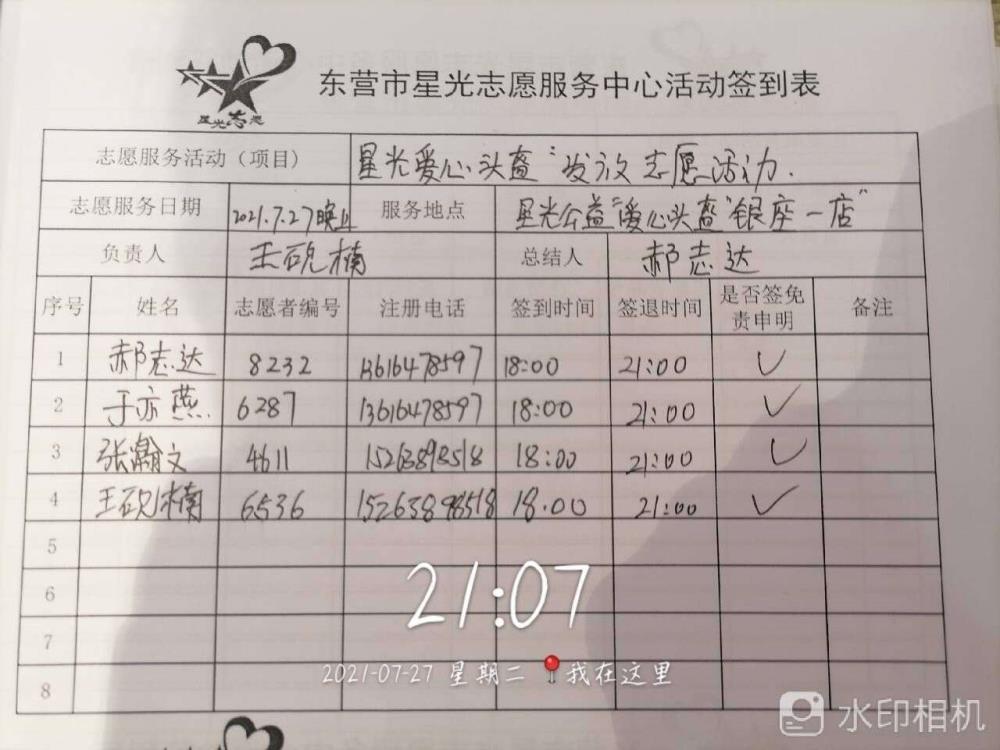 星光志愿
东营市星光志愿服务中心活动签到表
志愿服务活动（项目） 星光爱心头盔"发放志愿活动.
志愿服务日期 2021.7.27晚上 服务地点 星光公益"爱心头盔"银座一店"
负责人 王砚楠 总结人 郝志达
序号 姓名 志愿者编号 注册电话 签到时间 签退时间 是否签免责申明 备注
1 郝志达 8232 13616478597 18:00 21:00 ✓
2 于亦燕 6287 13616478597 18:00 21:00 ✓
3 张瀚文 4611 15263898518 18:00 21:00 ✓
4 王砚楠 6536 15263898518 18.00 21:00 ✓
5
6
7
8
21:07
2021-07-27 星期二 我在这里
水印相机